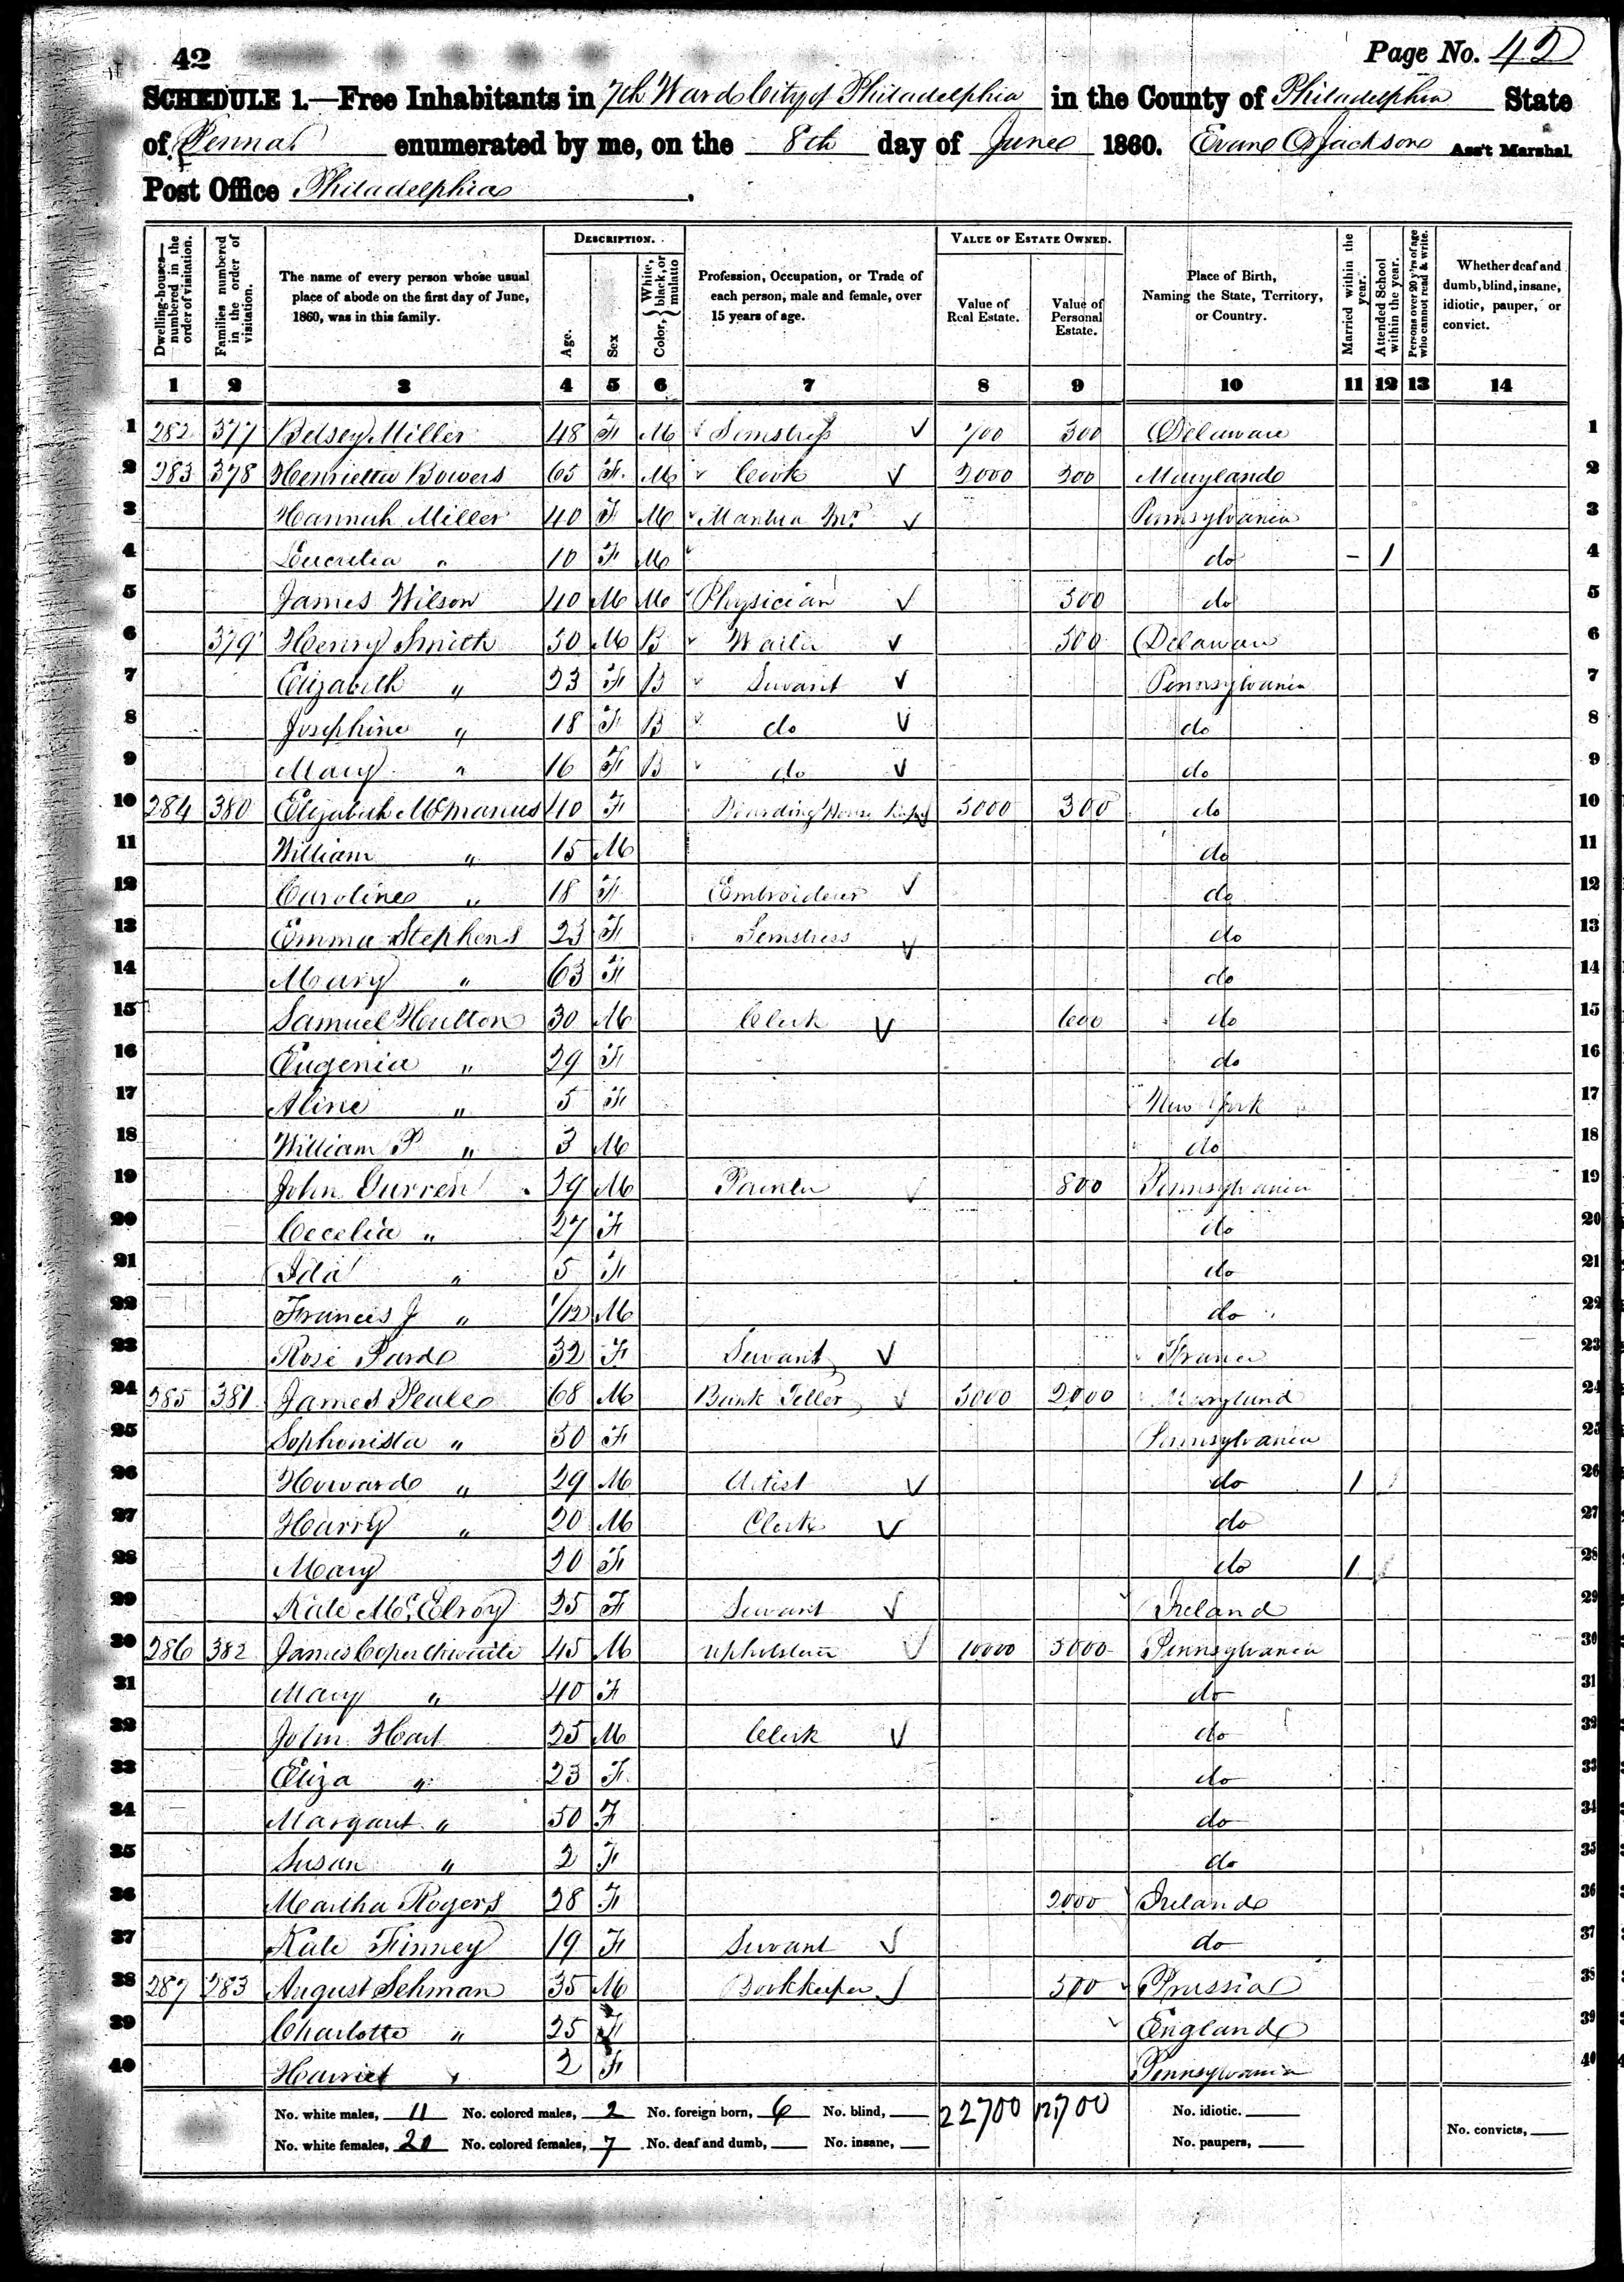 42
Page No. 42
SCHEDULE 1.—Free Inhabitants in 7th Ward City of Philadelphia in the County of Philadelphia State
of Penna enumerated by me, on the 8th day of June 1860. Ass't Marshal
Post Office Philadelphia.
Dwelling-houses—numbered in the order of visitation.
Families numbered in the order of visitation.
The name of every person whose usual place of abode on the first day of June, 1860, was in this family.
DESCRIPTION.
Age.
Sex
Color, } White, black, or mulatto
Profession, Occupation, or Trade of each person, male and female, over 15 years of age.
VALUE OF ESTATE OWNED.
Value of Real Estate.
Value of Personal Estate.
Place of Birth, Naming the State, Territory, or Country.
Married within the year.
Attended School within the year.
Persons over 20 y'rs of age who cannot read & write.
Whether deaf and dumb, blind, insane, idiotic, pauper, or convict.
1 2 3 4 5 6 7 8 9 10 11 12 13 14
1 282 377 Betsey Miller 48 F M Semstress 300 Delaware 1
2 283 378 Henrietta Bowers 65 F. M Cook Maryland 2
3 Hannah Miller 40 F M Mantua Mr Pennsylvania 3
4 Lucretia " 10 F M do - 1 4
5 James Wilson 40 M M Physician do 5
6 379 Henry Smith M B Waiter Delaware 6
7 Elizabeth " 23 F B Servant Pennsylvania 7
8 Josephine " 18 F B do do 8
9 Mary " 16 F B do do 9
10 284 380 Elizabeth McManus 40 F Boarding House 300 do 10
11 William " 15 M do 11
12 Caroline " 18 F Embroiderer do 12
13 Emma Stephens 23 F Semstress do 13
14 Mary " 63 F do 14
15 Samuel 30 M Clerk 600 do 15
16 Eugenia " 29 F do 16
17 Aline " 5 F New York 17
18 William P " 3 M do 18
19 John 29 M Painter 800 Pennsylvania 19
20 Cecelia " 27 F do 20
21 Ida " 5 F do 21
22 Francis J " 1/12 M do 22
23 Rose 32 F Servant France 23
24 285 381 James Peale 68 M Bank Teller 2000 Maryland 24
25 Sophonisba " F Pennsylvania 25
26 Howard " 29 M Artist do 1 26
27 Harry " 20 M Clerk do 27
28 Mary 20 F do 1 28
29 Kate McElroy 25 F Servant Ireland 29
30 286 382 James Coperthwaite 45 M Upholsterer 10000 Pennsylvania 30
31 Mary " 40 F do 31
32 John Hart 25 M Clerk do 32
33 Eliza " 23 F do 33
34 Margaret " 50 F do 34
35 Susan " 2 F do 35
36 Martha Rogers 28 F 2000 Ireland 36
37 Kate Finney 19 F Servant do 37
38 287 283 August Sehman 35 M Bookkeeper 500 Prussia 38
39 Charlotte " 25 F England 39
40 Harriet " 2 F Pennsylvania 40
No. white males, 11 No. colored males, 2 No. foreign born, 6 No. blind, 22700 No. idiotic.
No. white females, 20 No. colored females, 7 No. deaf and dumb, No. insane, No. paupers, No. convicts,